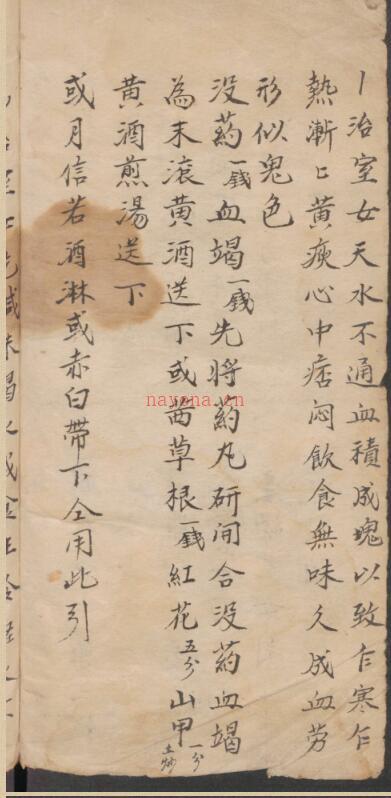 丨治室女天水不通血積成塊以致乍寒乍
熱漸〻黄瘐心中痞闷飲食無味久成血劳
形似鬼色
没药一錢血竭一錢先将药丸研闲合没药血竭
為末滚黄酒送下或茜草根一錢紅花五分山甲一分土炒
黄酒煎湯送下
或月信若酒淋或赤白帶下仝用此引
nayona.cn